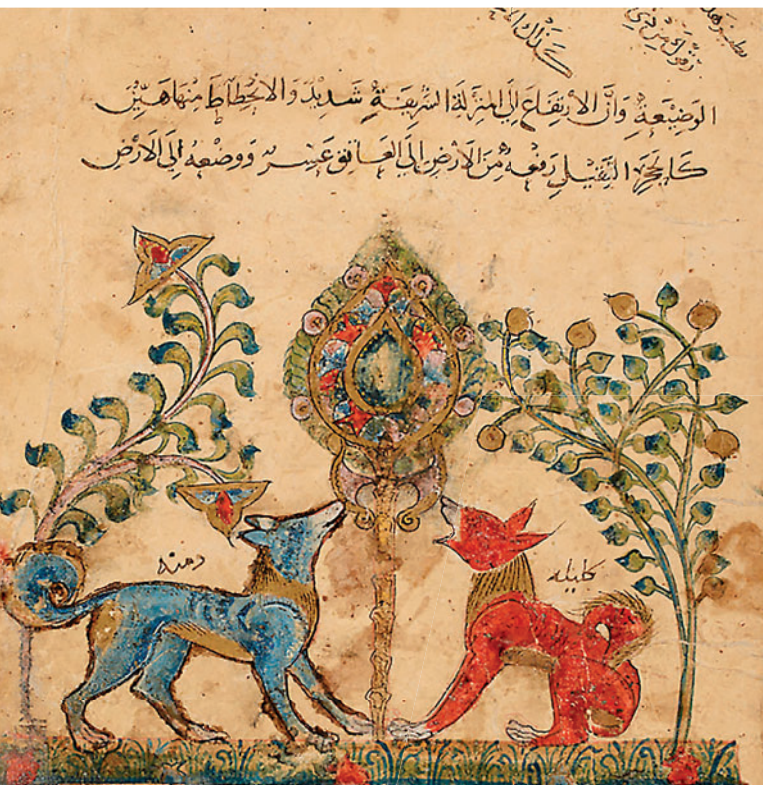 الوَضِيْعَةِ وَانَّ الارتِفَاعَ إِلَى المَنزِلَةِ الشَّرِيفَةِ شَدِيْدٌ وَالانحِطَاطَ مِنهَا هَيِّنٌ
كَالحَجَرِ الثَّقِيْلِ رَفعُهُ مِنَ الأَرْضِ إِلَى العَاتِقِ عَسِرٌ وَوَضْعُهُ إِلَى الأَرضِ
دمنه كليله